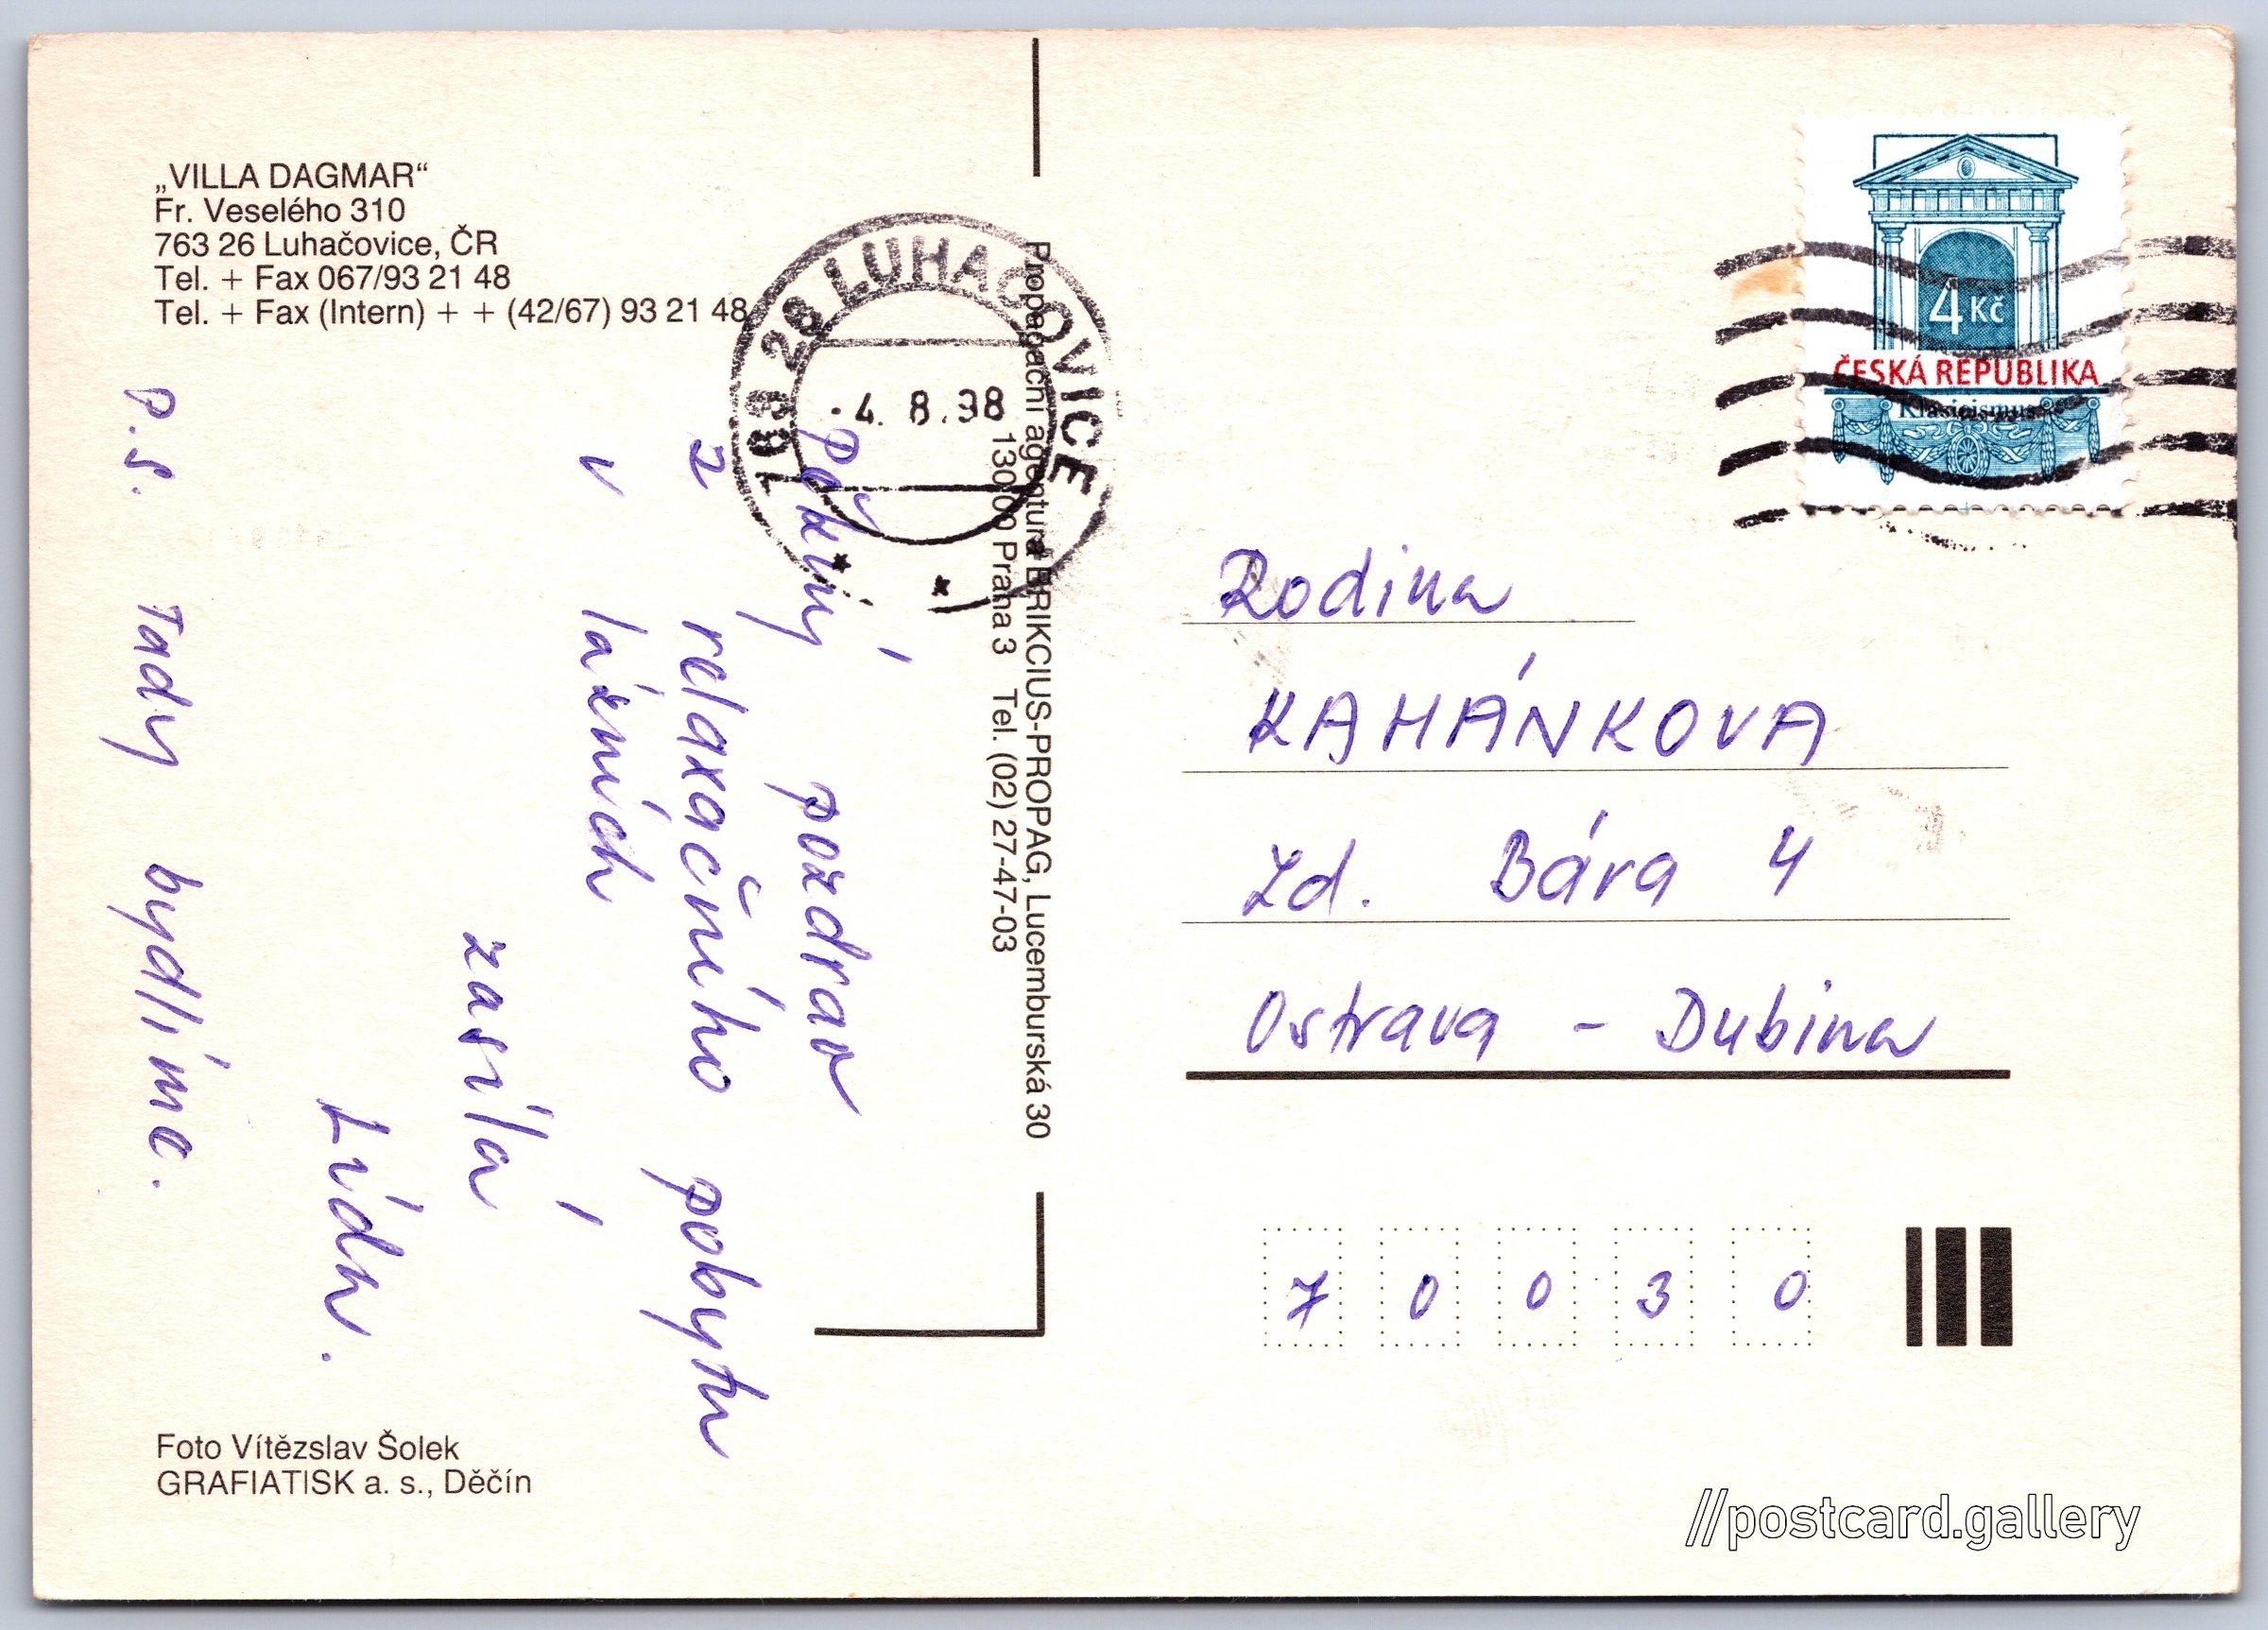 „VILLA DAGMAR“
Fr. Veselého 310
763 26 Luhačovice, ČR
Tel. + Fax 067/93 21 48
Tel. + Fax (Intern) + + (42/67) 93 21 48
pěkný pozdrav
z relaxačního pobytu
v lázních
zasílá
Lída.
P.S. Tady bydlíme.
Foto Vítězslav Šolek
GRAFIATISK a. s., Děčín
763 26 LUHAČOVICE
-4. 8.98
Propagační agentura BRIKCIUS-PROPAG, Lucemburská 30
130 00 Praha 3 Tel. (02) 27-47-03
4 Kč
ČESKÁ REPUBLIKA
Klasicismus
Rodina
KAHÁNKOVA
Zd. Bára 4
Ostrava - Dubina
7 0 0 3 0
//postcard.gallery